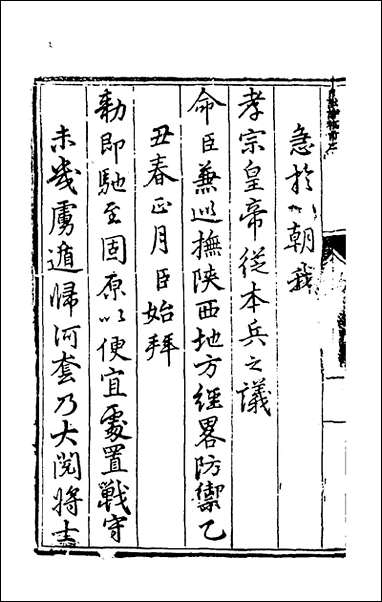 急於入朝我
孝宗皇帝從本兵之議
命臣兼巡撫陝西地方經畧防禦乙
丑春正月臣始拜
勑即馳至固原以便宜處置戰守
未幾虜遁歸河套乃大閱將士